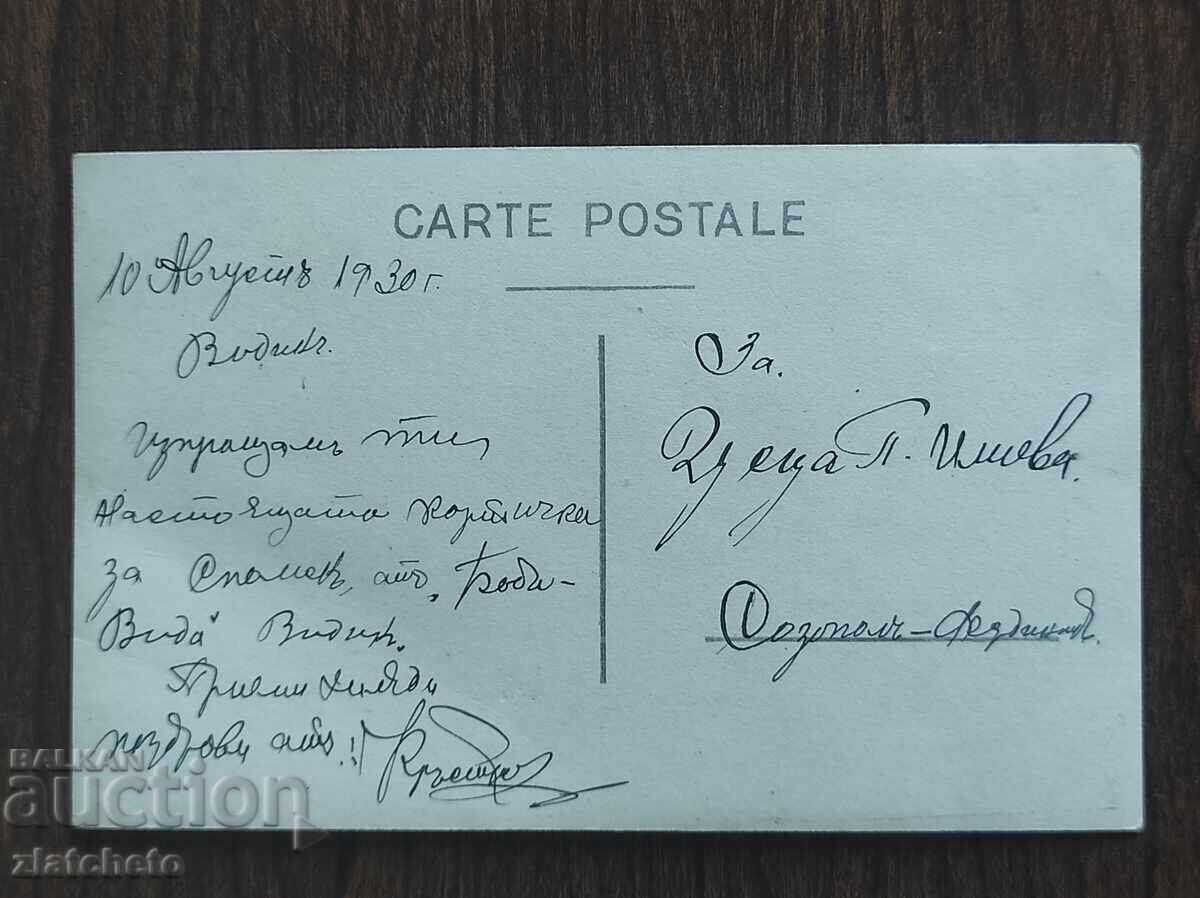 CARTE POSTALE
10 Августъ 1930 г.
Видинъ.
Изпращамъ ти
настоящата картичка
за Споменъ, отъ „Баби-
Вида" Видинъ.
Приеми хиляди
поздрави отъ !!
Кръстю
За.
П. Илиева.
Созополъ –
BALKAN
auction
zlatcheto